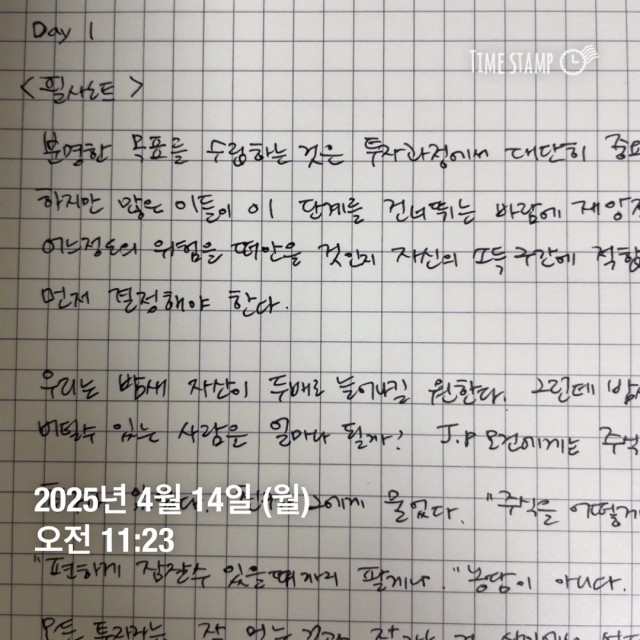 Day 1
TIME STAMP
<필사노트>
분명한 목표를 수립하는 것은 투자과정에서 대단히 중요
하지만 많은 이들이 이 단계를 건너뛰는 바람에 재앙
어느정도의 위험을 떠안을 것인지 자신의 소득구간에 적합
먼저 결정해야 한다.
우리는 밤새 자산이 두배로 늘어나길 원한다. 그런데 밤
버틸수 있는 사람은 얼마나 될까? J.P 모건에게는 주식
에게 물었다. "주식을 어떻게
2025년 4월 14일 (월)
오전 11:23
"편하게 잠잘수 있을때까지 팔게나." 농담이 아니다.